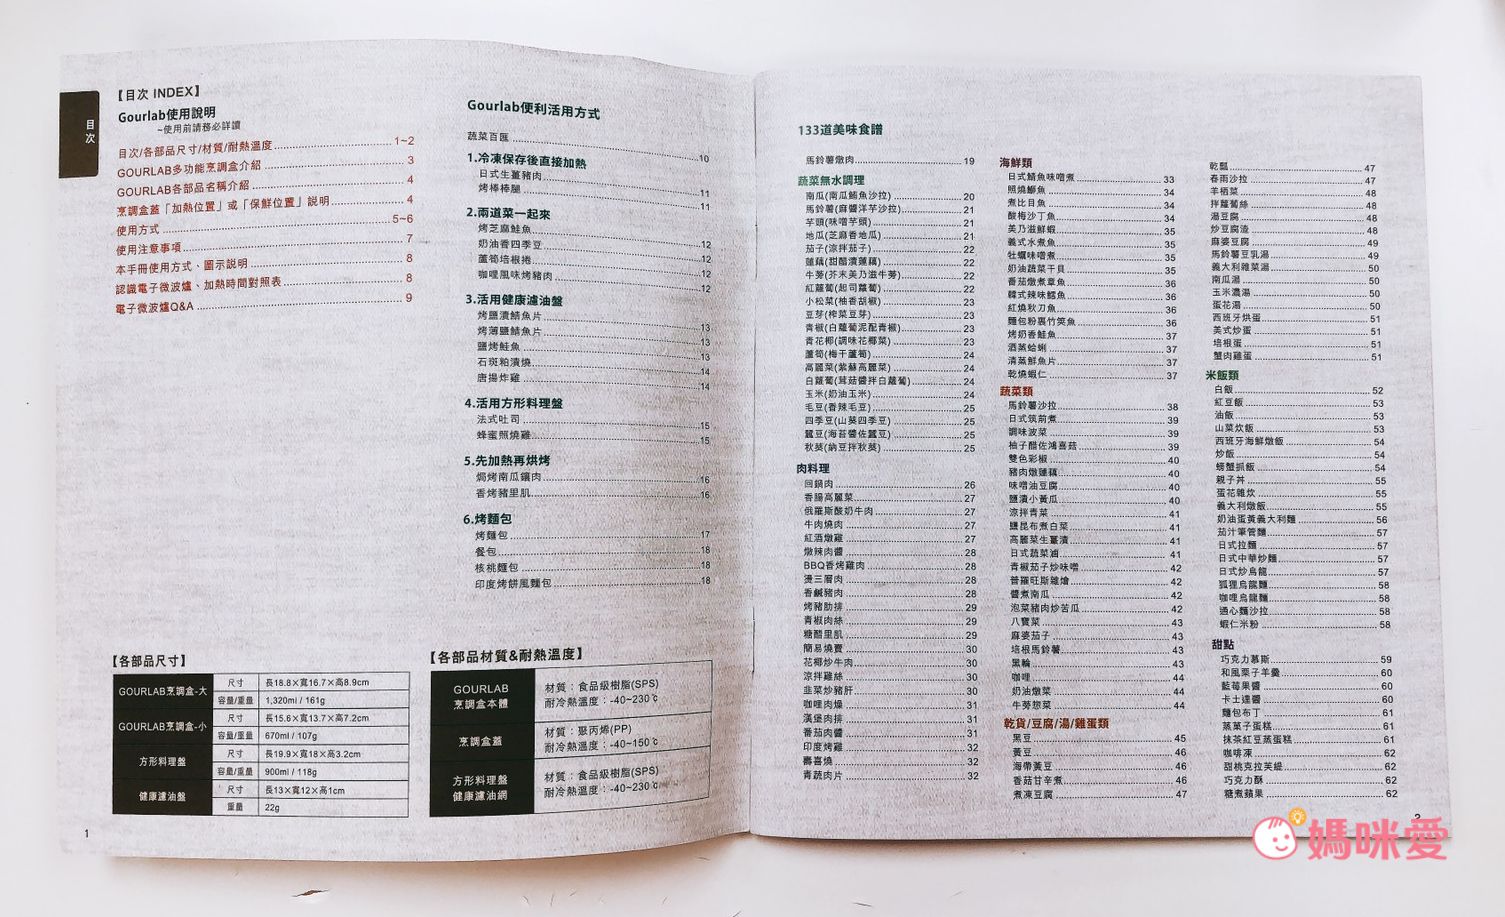 目次
【目次 INDEX】
Gourlab使用說明
~使用前請務必詳讀
目次/各部品尺寸/材質/耐熱溫度 1~2
GOURLAB多功能烹調盒介紹 3
GOURLAB各部品名稱介紹 4
烹調盒蓋「加熱位置」或「保鮮位置」說明 4
使用方式 5~6
使用注意事項 7
本手冊使用方式、圖示說明 8
認識電子微波爐、加熱時間對照表 8
電子微波爐Q&A 9
Gourlab便利活用方式
蔬菜百匯 10
1.冷凍保存後直接加熱
日式生薑豬肉 11
烤棒棒腿 11
2.兩道菜一起來
烤芝麻鮭魚 12
奶油香四季豆 12
蘆筍培根捲 12
咖哩風味烤豬肉 12
3.活用健康濾油盤
烤鹽漬鯖魚片 13
烤薄鹽鯖魚片 13
鹽烤鮭魚 13
石斑粕漬燒 14
唐揚炸雞 14
4.活用方形料理盤
法式吐司 15
蜂蜜照燒雞 15
5.先加熱再烘烤
焗烤南瓜鑲肉 16
香烤豬里肌 16
6.烤麵包
烤麵包 17
餐包 18
核桃麵包 18
印度烤餅風麵包 18
【各部品尺寸】
GOURLAB烹調盒-大 尺寸 長18.8×寬16.7×高8.9cm
容量/重量 1,320ml / 161g
GOURLAB烹調盒-小 尺寸 長15.6×寬13.7×高7.2cm
容量/重量 670ml / 107g
方形料理盤 尺寸 長19.9×寬18×高3.2cm
容量/重量 900ml / 118g
健康濾油盤 尺寸 長13×寬12×高1cm
重量 22g
【各部品材質&耐熱溫度】
GOURLAB烹調盒本體 材質：食品級樹脂(SPS)
耐冷熱溫度：-40~230℃
烹調盒蓋 材質：聚丙烯(PP)
耐冷熱溫度：-40~150℃
方形料理盤 健康濾油網 材質：食品級樹脂(SPS)
耐冷熱溫度：-40~230℃
1
133道美味食譜
馬鈴薯燉肉 19
蔬菜無水調理
南瓜(南瓜鮪魚沙拉) 20
馬鈴薯(麻醬洋芋沙拉) 21
芋頭(味噌芋頭) 21
地瓜(芝麻香地瓜) 21
茄子(涼拌茄子) 22
蓮藕(甜醋漬蓮藕) 22
牛蒡(芥末美乃滋牛蒡) 22
紅蘿蔔(起司蘿蔔) 22
小松菜(柚香胡椒) 23
豆芽(榨菜豆芽) 23
青椒(白蘿蔔泥配青椒) 23
青花椰(調味花椰菜) 23
蘆筍(梅干蘆筍) 24
高麗菜(紫蘇高麗菜) 24
白蘿蔔(茸菇醬拌白蘿蔔) 24
玉米(奶油玉米) 24
毛豆(香辣毛豆) 25
四季豆(山葵四季豆) 25
蠶豆(海苔醬佐蠶豆) 25
秋葵(納豆拌秋葵) 25
肉料理
回鍋肉 26
香腸高麗菜 27
俄羅斯酸奶牛肉 27
牛肉燒肉 27
紅酒燉雞 27
燉辣肉醬 28
BBQ香烤雞肉 28
燙三層肉 28
香鹹豬肉 28
烤豬肋排 29
青椒肉絲 29
糖醋里肌 29
簡易燒賣 30
花椰炒牛肉 30
涼拌雞絲 30
韭菜炒豬肝 30
咖哩肉燥 31
漢堡肉排 31
番茄肉醬 31
印度烤雞 32
壽喜燒 32
青蔬肉片 32
海鮮類
日式鯖魚味噌煮 33
照燒鰤魚 34
煮比目魚 34
酸梅沙丁魚 34
美乃滋鮮蝦 35
義式水煮魚 35
牡蠣味噌煮 35
奶油蔬菜干貝 35
番茄燉煮章魚 36
韓式辣味鱈魚 36
紅燒秋刀魚 36
麵包粉裹竹莢魚 36
烤奶香鮭魚 37
酒蒸蛤蜊 37
清蒸鮮魚片 37
乾燒蝦仁 37
蔬菜類
馬鈴薯沙拉 38
日式筑前煮 39
調味菠菜 39
柚子醋佐鴻喜菇 39
雙色彩椒 40
豬肉燉蓮藕 40
味噌油豆腐 40
鹽漬小黃瓜 40
涼拌青菜 41
鹽昆布煮白菜 41
高麗菜生薑漬 41
日式蔬菜滷 41
青椒茄子炒味噌 42
普羅旺斯雜燴 42
醬煮南瓜 42
泡菜豬肉炒苦瓜 42
八寶菜 43
麻婆茄子 43
培根馬鈴薯 43
黑輪 43
咖哩 44
奶油燉菜 44
牛蒡惣菜 44
乾貨/豆腐/湯/雞蛋類
黑豆 45
黃豆 46
海帶黃豆 46
香菇甘辛煮 46
煮凍豆腐 47
乾瓢 47
春雨沙拉 47
羊栖菜 48
拌蘿蔔絲 48
湯豆腐 48
炒豆腐渣 48
麻婆豆腐 49
馬鈴薯豆乳湯 49
義大利雜菜湯 50
南瓜湯 50
玉米濃湯 50
蛋花湯 50
西班牙烘蛋 51
美式炒蛋 51
培根蛋 51
蟹肉雞蛋 51
米飯類
白飯 52
紅豆飯 53
油飯 53
山菜炊飯 53
西班牙海鮮燉飯 54
炒飯 54
螃蟹抓飯 54
親子丼 55
蛋花雜炊 55
義大利燉飯 55
奶油蛋黃義大利麵 56
茄汁筆管麵 57
日式拉麵 57
日式中華炒麵 57
日式炒烏龍 57
狐狸烏龍麵 58
咖哩烏龍麵 58
通心麵沙拉 58
蝦仁米粉 58
甜點
巧克力慕斯 59
和風栗子羊羹 60
藍莓果醬 60
卡士達醬 60
麵包布丁 61
蒸菓子蛋糕 61
抹茶紅豆蒸蛋糕 61
咖啡凍 62
甜桃克拉芙緹 62
巧克力酥 62
糖煮蘋果 62
2
媽咪愛